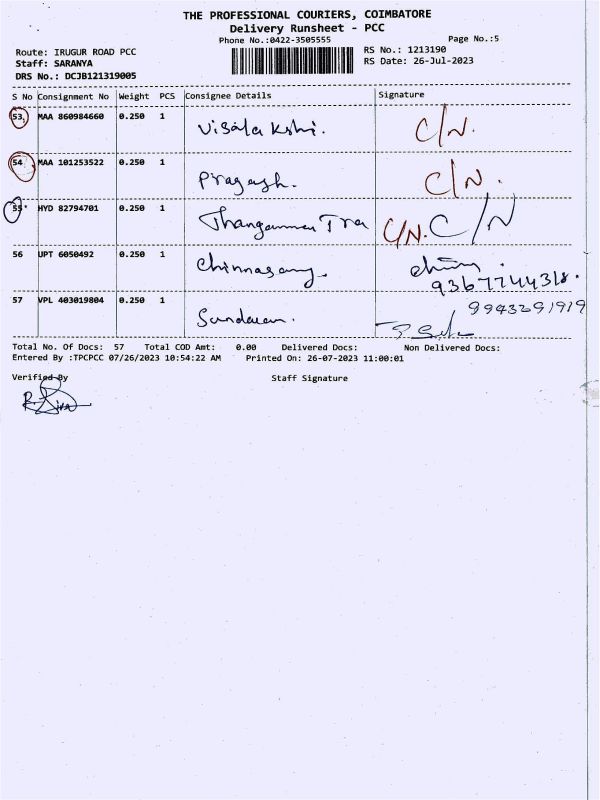 THE PROFESSIONAL COURIERS, COIMBATORE
Delivery Runsheet - PCC
Phone No.:0422-3505555 Page No.:5
Route: IRUGUR ROAD PCC RS No.: 1213190
Staff: SARANYA RS Date: 26-Jul-2023
DRS No.: DCJB121319005
S No Consignment No Weight PCS Consignee Details Signature
53 MAA 860984660 0.250 1 Visalakshi. C/N.
54 MAA 101253522 0.250 1 Pragash. C/N.
55 HYD 82794701 0.250 1 Thangamman Tra C/N. C/N
56 UPT 6050492 0.250 1 Chinnasamy. 9367744318.
57 VPL 403019804 0.250 1 Sundaram. 9943291919
Total No. Of Docs: 57 Total COD Amt: 0.00 Delivered Docs: Non Delivered Docs:
Entered By :TPCPCC 07/26/2023 10:54:22 AM Printed On: 26-07-2023 11:00:01
Verified By Staff Signature
R. Siva